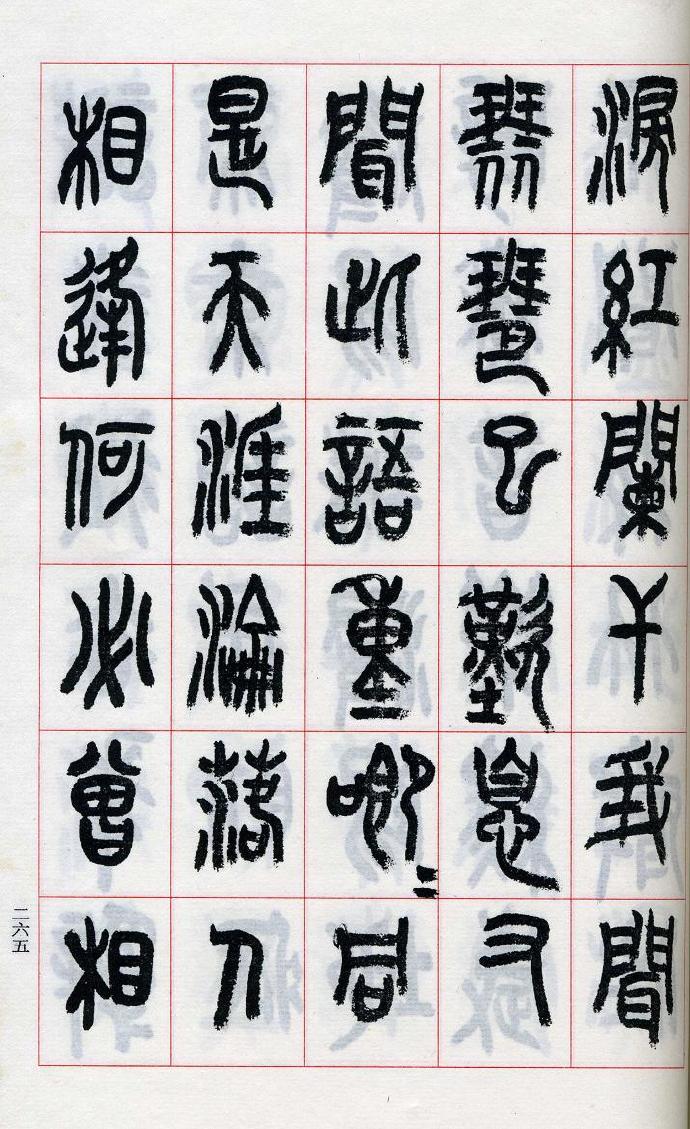 淚紅闌干我聞
琵琶已歎息又
聞此語重唧〻同
是天涯淪落人
相逢何必曾相
二六五